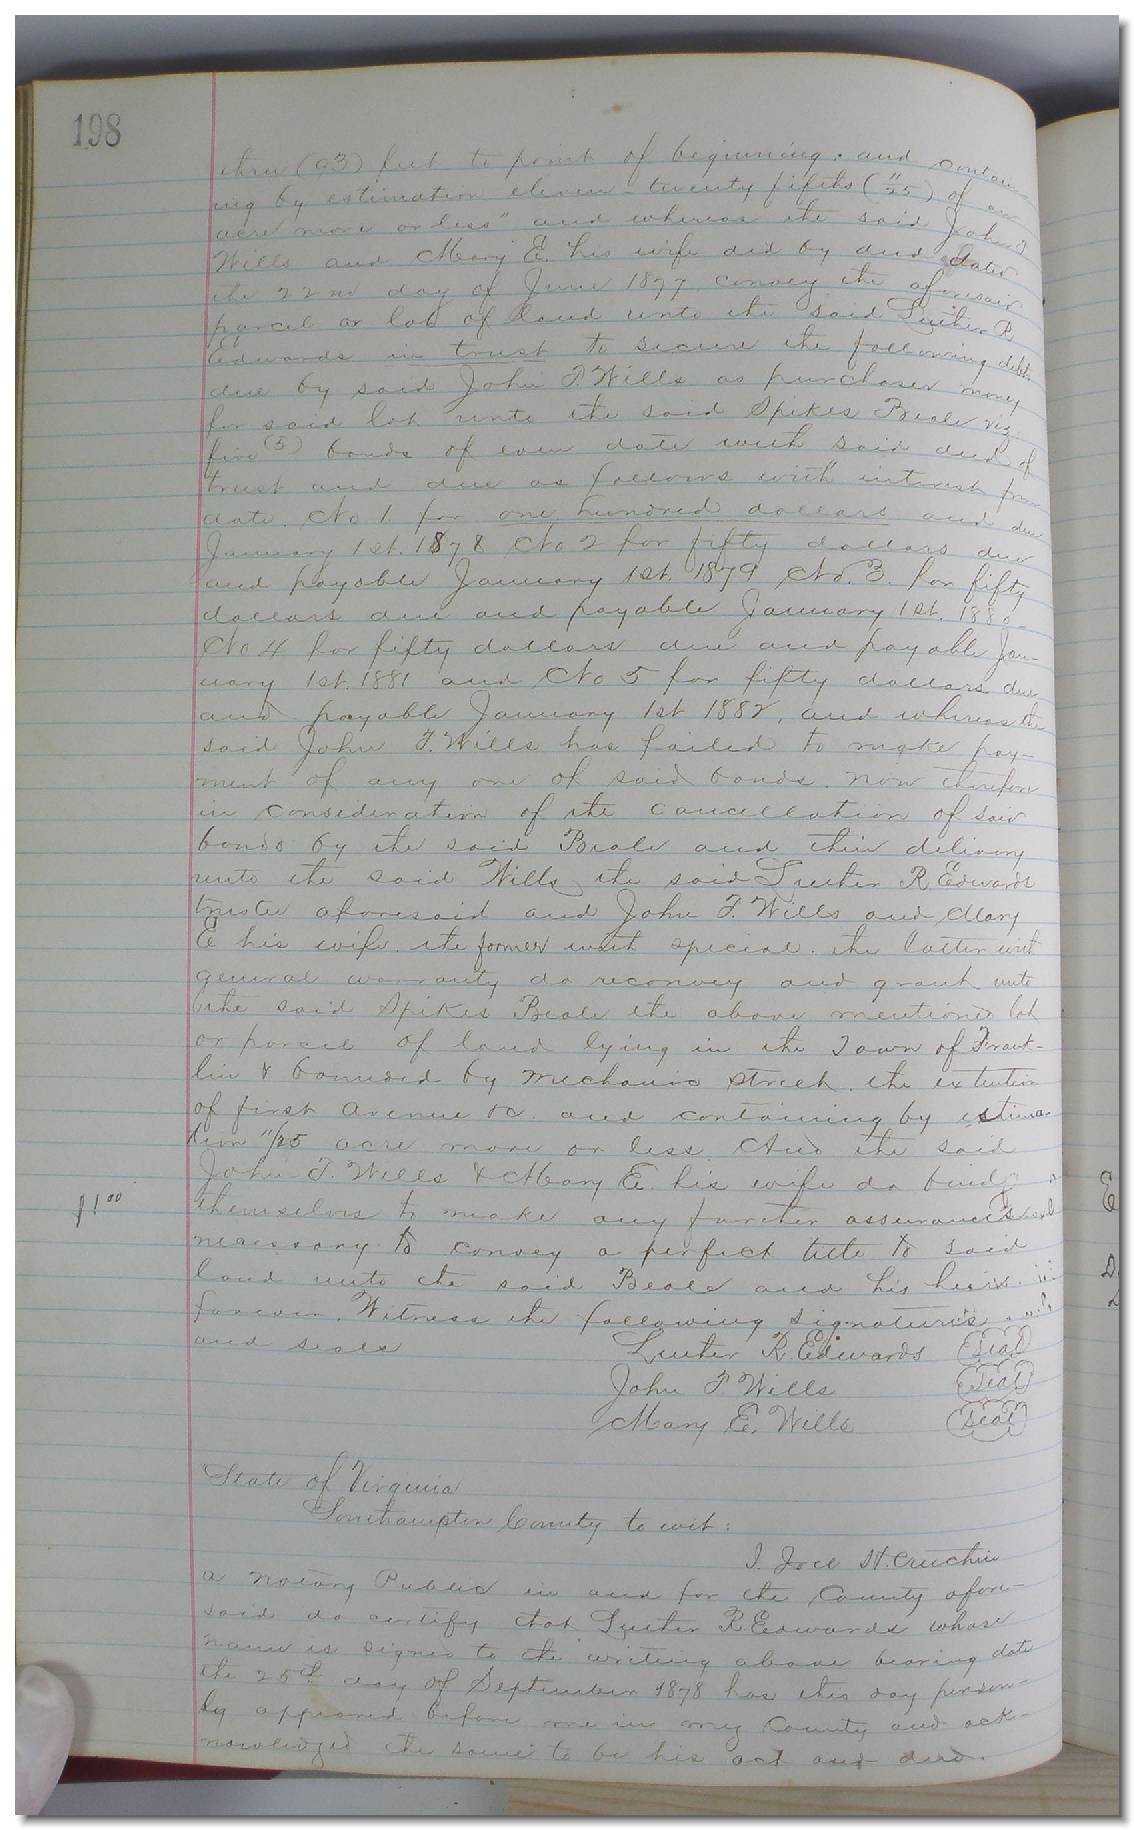 198
three (93) feet to point of beginning: and contain-
ing by estimation eleven - twenty fifths (11/25) of an
acre more or less" and whereas the said John F
Wills and Mary E. his wife did by deed dated
the 22nd day of June 1877 convey the aforesaid
parcel or lot of land unto the said Luther R
Edwards in trust to secure the following debts
due by said John F. Wills as purchase money
for said lot unto the said Spikes Beale viz
five (5) bonds of even date with said deed of
trust and due as follows with interest from
date. No 1 for one hundred dollars and due
January 1st. 1878 No 2 for fifty dollars due
and payable January 1st. 1879 No. 3. for fifty
dollars due and payable January 1st. 1880-
No 4 for fifty dollars due and payable Jan-
uary 1st. 1881 and No 5 for fifty dollars due
and payable January 1st 1882, and whereas the
said John F. Wills has failed to make pay-
ment of any one of said bonds. now therefore
in consideration of the cancellation of said
bonds by the said Beale and their delivery
unto the said Wills, the said Luther R Edwards
trustee aforesaid and John F. Wills and Mary
E his wife. the former with special. the latter with
general warranty do reconvey and grant unto
the said Spikes Beale the above mentioned lot
or parcel of land lying in the Town of Frank-
lin & bounded by Mechanic Street. the extention
of first Avenue &c. and containing by estima-
tion 11/25 acre more or less. And the said
John F. Wills & Mary E. his wife do bind
$1.00
themselves to make any further assurances
necessary to convey a perfect title to said
land unto the said Beale and his heirs
forever. Witness the following signatures
and seals
Luther R. Edwards (Seal)
John F Wills (Seal)
Mary E. Wills (Seal)
State of Virginia
Southampton County to wit:
I. Joel H. Cruchin
a notary Public in and for the County afore-
said do certify that Luther R. Edwards whose
name is signed to the writing above bearing date
the 25th day of September 1878 has this day person-
ly appeared before me in my County and ack-
nowledged the same to be his act and deed.